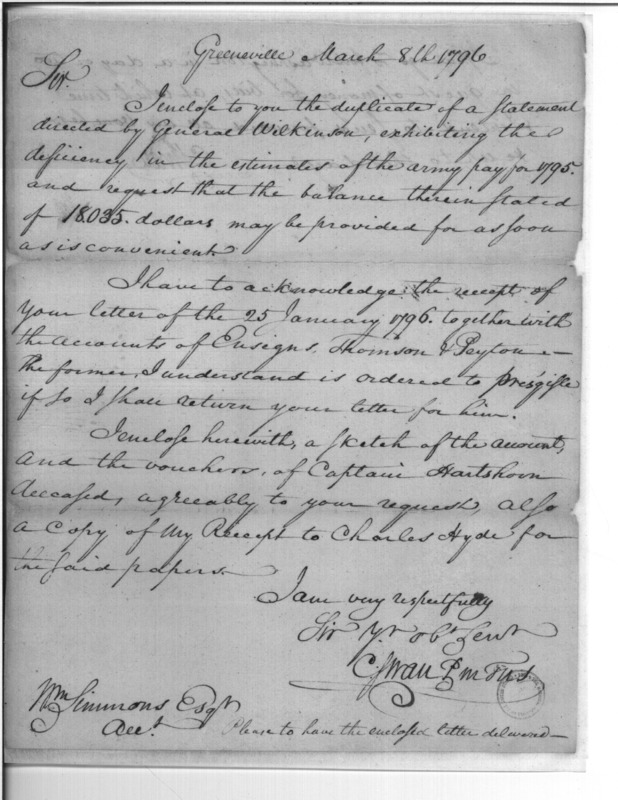 Greeneville March 8th 1796
Sir.
I enclose to you the duplicate of a statement
directed by General Wilkinson, exhibiting the
deficiency in the estimates of the army pay for 1795.
and request that the balance therein stated
of 18.035. dollars may be provided for as soon
as is convenient.
I have to acknowledge the receipt of
your letter of the 25 January 1796. together with
the accounts of Ensigns, Thomson & Peyton —
the former, I understand is ordered to Presqisle
if so I shall return your letter for him.
I enclose herewith, a sketch of the amount,
and the vouchers, of Captain Hartshorn
deceased, agreeably to your request, also
a Copy of my Receipt to Charles Hyde for
the said papers.
I am very respectfully
Sir Yr. obt. Servt
C. Swan P m T US
Wm Simmons Esqr
Acct.
Please to have the enclosed letter delivered —